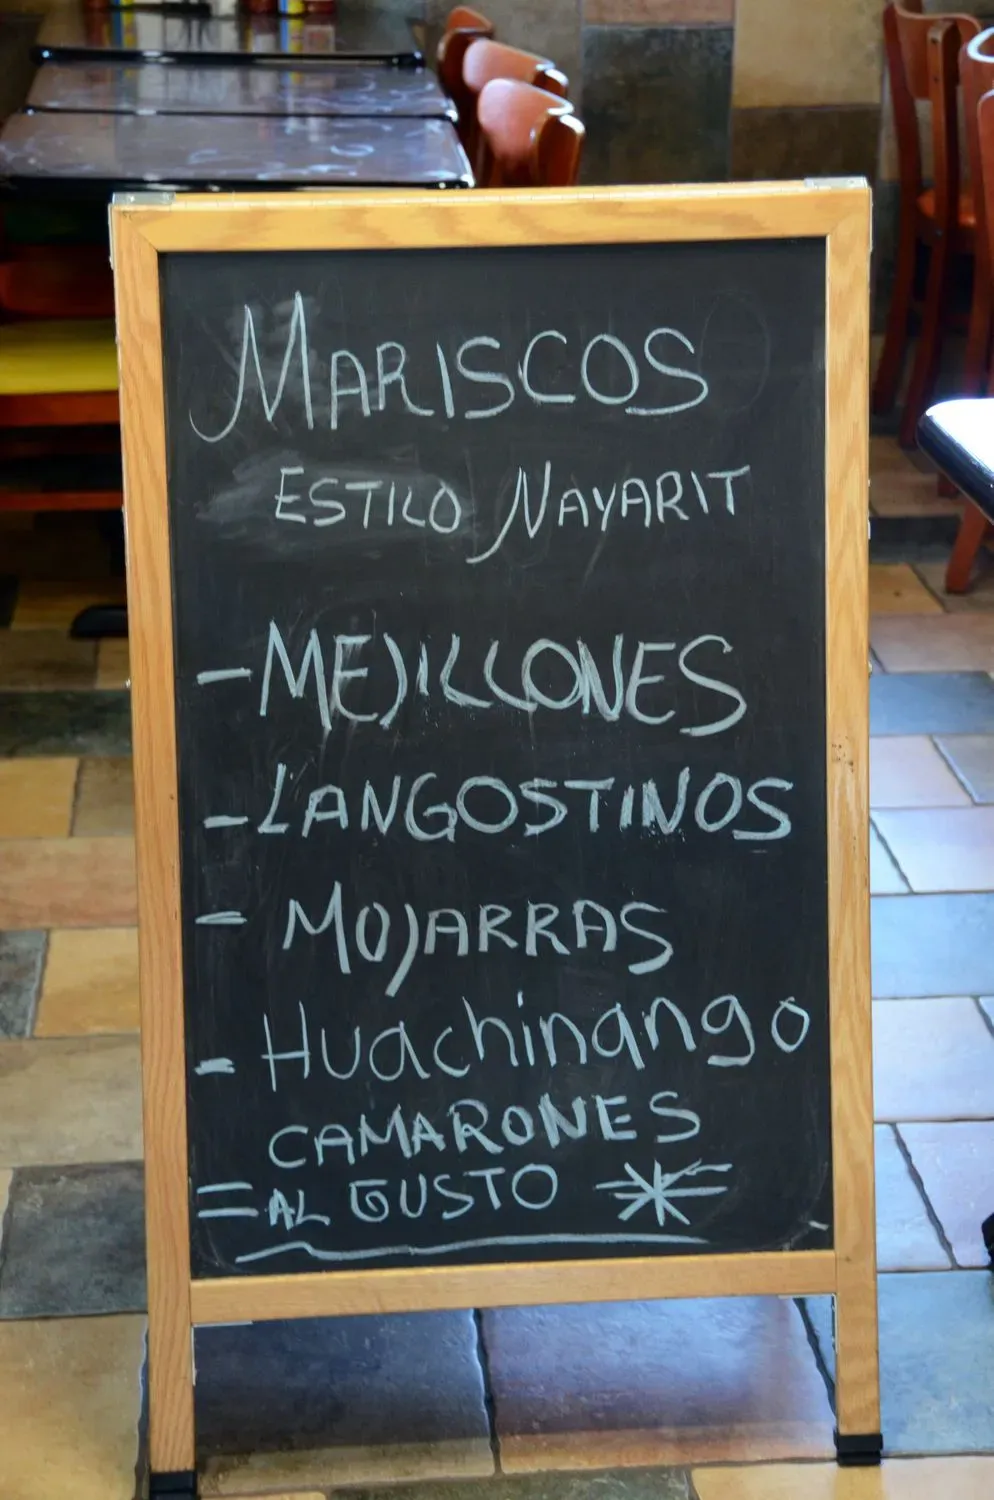 MARISCOS
ESTILO NAYARIT
- MEJILLONES
- LANGOSTINOS
- MOJARRAS
- Huachinango
CAMARONES
= AL GUSTO *